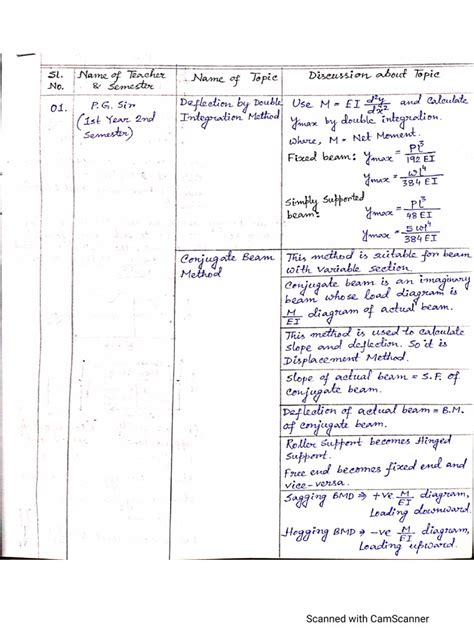 Sl. No.
Name of Teacher & Semester
Name of Topic
Discussion about Topic
01.
P.G. Sir
(1st Year 2nd
Semester)
Deflection by Double
Integration Method
Use M = EI d²y/dx² and calculate
ymax by double integration.
where, M = Net Moment.
Fixed beam: ymax = Pl³/192 EI
ymax = wl⁴/384 EI
Simply Supported
beam: ymax = Pl³/48 EI
ymax = 5wl⁴/384 EI
Conjugate Beam
Method
This method is suitable for beam
with variable section.
Conjugate beam is an imaginary
beam whose load diagram is
M/EI diagram of actual beam.
This method is used to calculate
slope and deflection. So it is
Displacement Method.
Slope of actual beam = S.F. of
Conjugate beam.
Deflection of actual beam = B.M.
of Conjugate beam.
Roller Support becomes Hinged
Support.
Free end becomes fixed end and
vice-versa.
Sagging BMD ⇒ +ve M/EI diagram,
Loading downward.
Hogging BMD ⇒ -ve M/EI diagram,
Loading upward.
Scanned with CamScanner